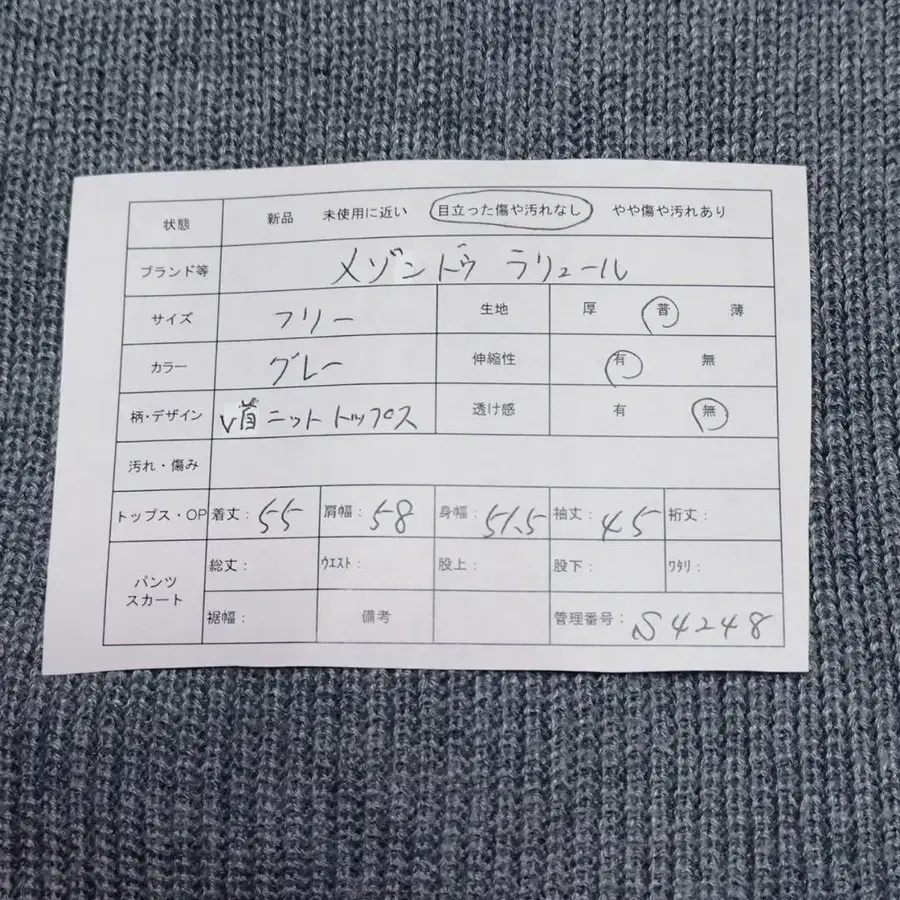 状態 新品 未使用に近い 目立った傷や汚れなし やや傷や汚れあり
ブランド等 メゾンドゥ ラリュール
サイズ フリー 生地 厚 普 薄
カラー グレー 伸縮性 有 無
柄・デザイン V首ニット トップス 透け感 有 無
汚れ・傷み
トップス・OP 着丈: 55 肩幅: 58 身幅: 51.5 袖丈: 45 裄丈:
パンツ スカート 総丈: ウエスト: 股上: 股下: ワタリ:
裾幅: 備考 管理番号: S4248